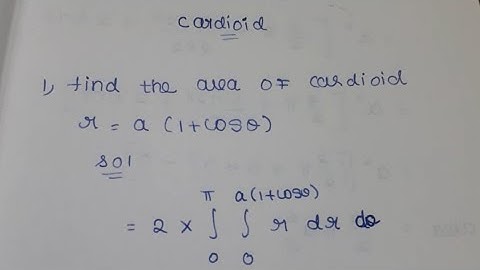 cardioid
1, find the area of cardioid
r = a (1+cosθ)
sol
π a(1+cosθ)
= 2 × ∫ ∫ r dr dθ
0 0